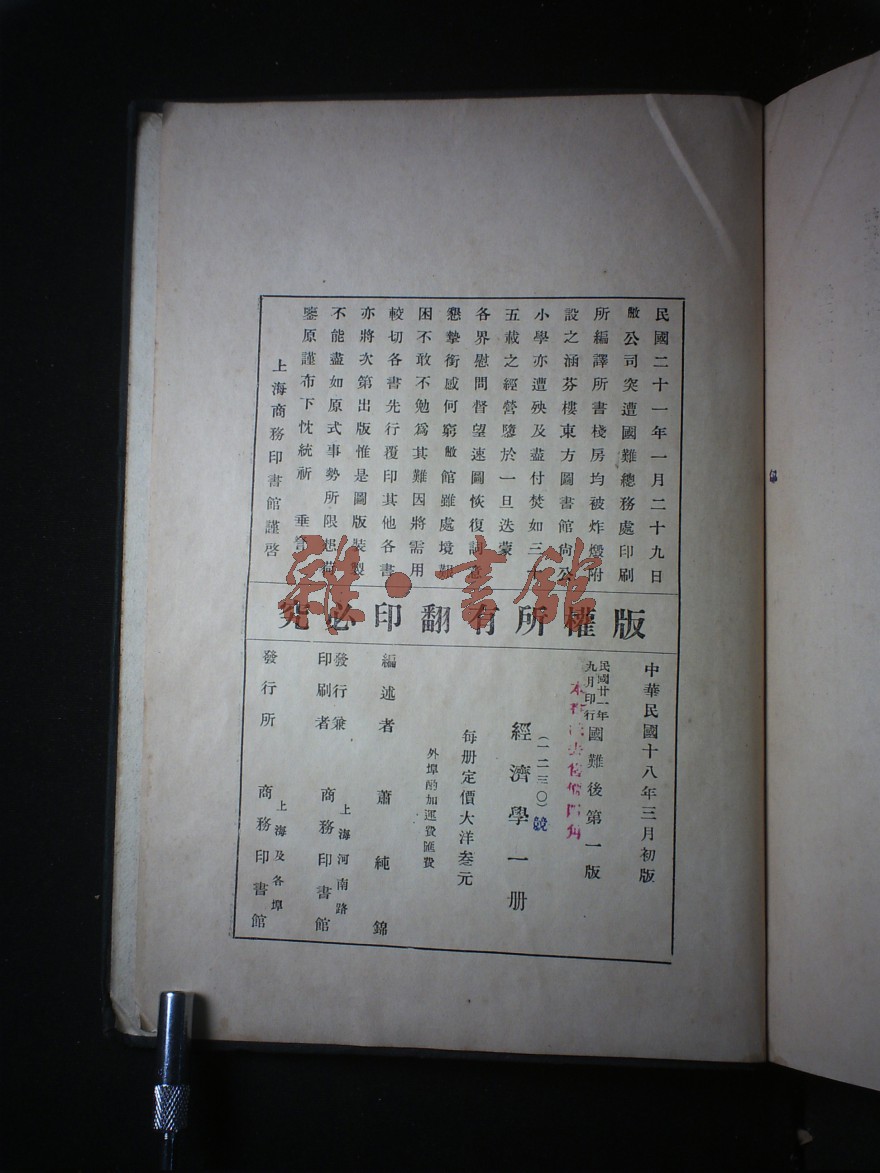 民國二十一年一月二十九日
敝公司突遭國難總務處印刷
所編譯所書棧房均被炸燬附
設之涵芬樓東方圖書館尙公
小學亦遭殃及盡付焚如三十
五載之經營隳於一旦迭蒙
各界慰問督望速圖恢復詞意
懇摯銜感何窮敝館雖處境艱
困不敢不勉爲其難因將需用
較切各書先行覆印其他各書
亦將次第出版惟是圖版裝製
不能盡如原式事勢所限想荷
鑒原謹布下忱統祈 垂詧
上海商務印書館謹啓
雜·書館
版權所有翻印必究
中華民國十八年三月初版
民國廿一年九月印行國難後第一版
本
(一二三〇)
經濟學一册
每册定價大洋叁元
外埠酌加運費匯費
編述者 蕭純錦
發行兼印刷者 上海河南路 商務印書館
發行所 上海及各埠 商務印書館